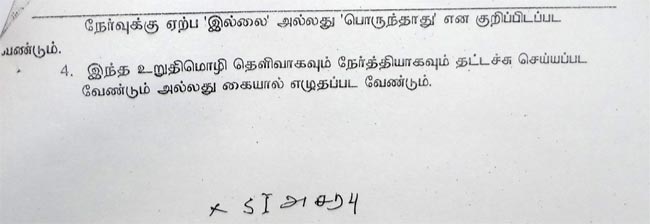 நேர்வுக்கு ஏற்ப 'இல்லை' அல்லது 'பொருந்தாது' என குறிப்பிடப்பட
வண்டும்.
4. இந்த உறுதிமொழி தெளிவாகவும் நேர்த்தியாகவும் தட்டச்சு செய்யப்பட
வேண்டும் அல்லது கையால் எழுதப்பட வேண்டும்.